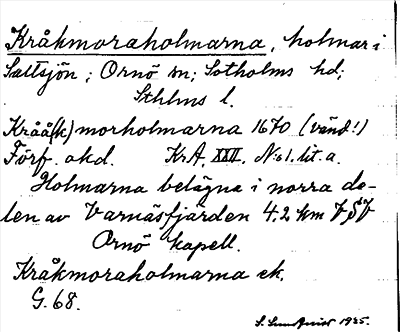 Kråkmoraholmarna, holmar i
Saltsjön; Ornö sn; Sotholms hd;
Sthlms l.
Kråå(k)morholmarna 1670 (vänd!)
Förf. okd. KrA, XXII, N:o 1. lit. a.
Holmarna belägna i norra de-
len av Varnäsfjärden 4.2 km VSV
Ornö kapell.
Kråkmoraholmarna ek.
G. 68.
S. Lundqvist 1935.